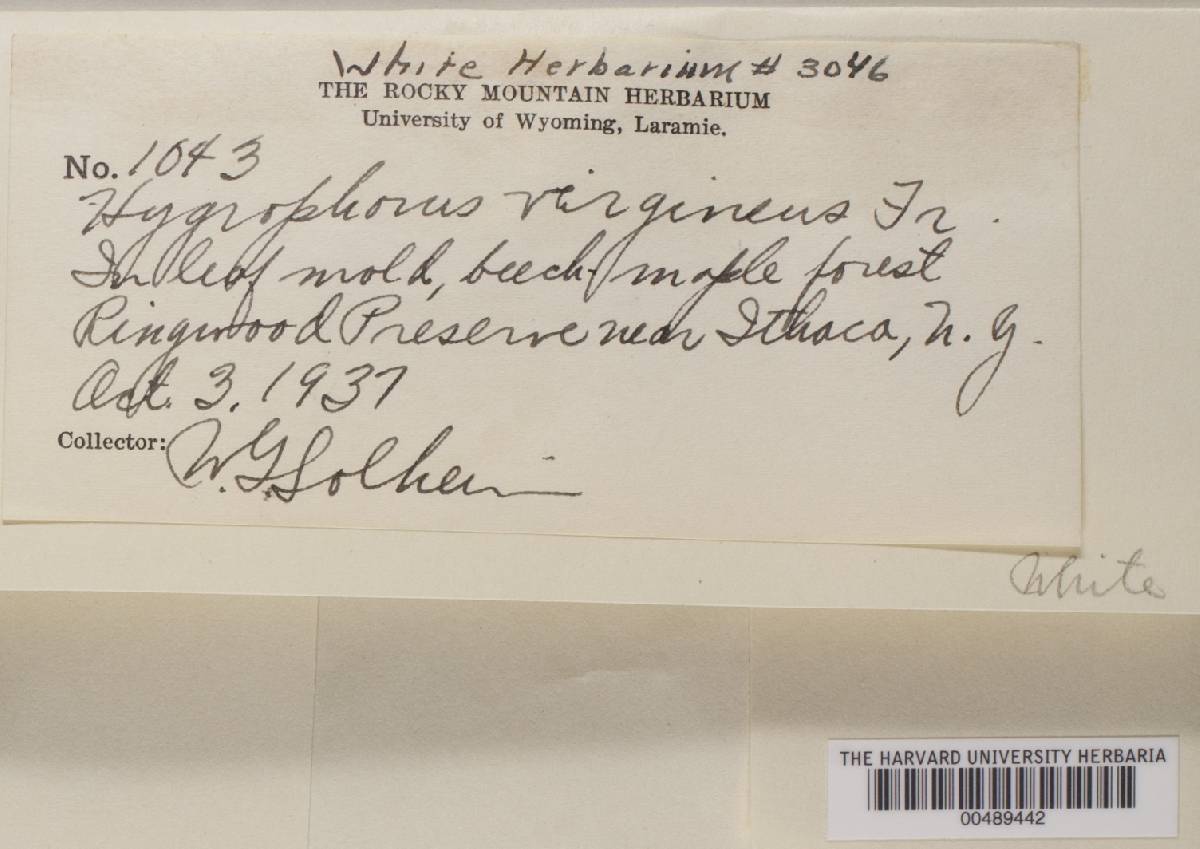 White Herbarium # 3046
THE ROCKY MOUNTAIN HERBARIUM
University of Wyoming, Laramie.
No. 1043
Hygrophorus virgineus Fr.
In leaf mold, beech-maple forest
Ringwood Preserve near Ithaca, N.Y.
Oct. 3, 1937
Collector: W.G. Solheim
White
THE HARVARD UNIVERSITY HERBARIA
00489442